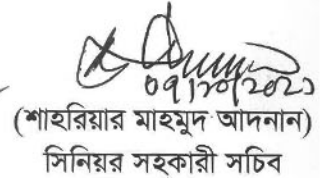 ০৭/১০/২০২১
(শাহরিয়ার মাহমুদ আদনান)
সিনিয়র সহকারী সচিব